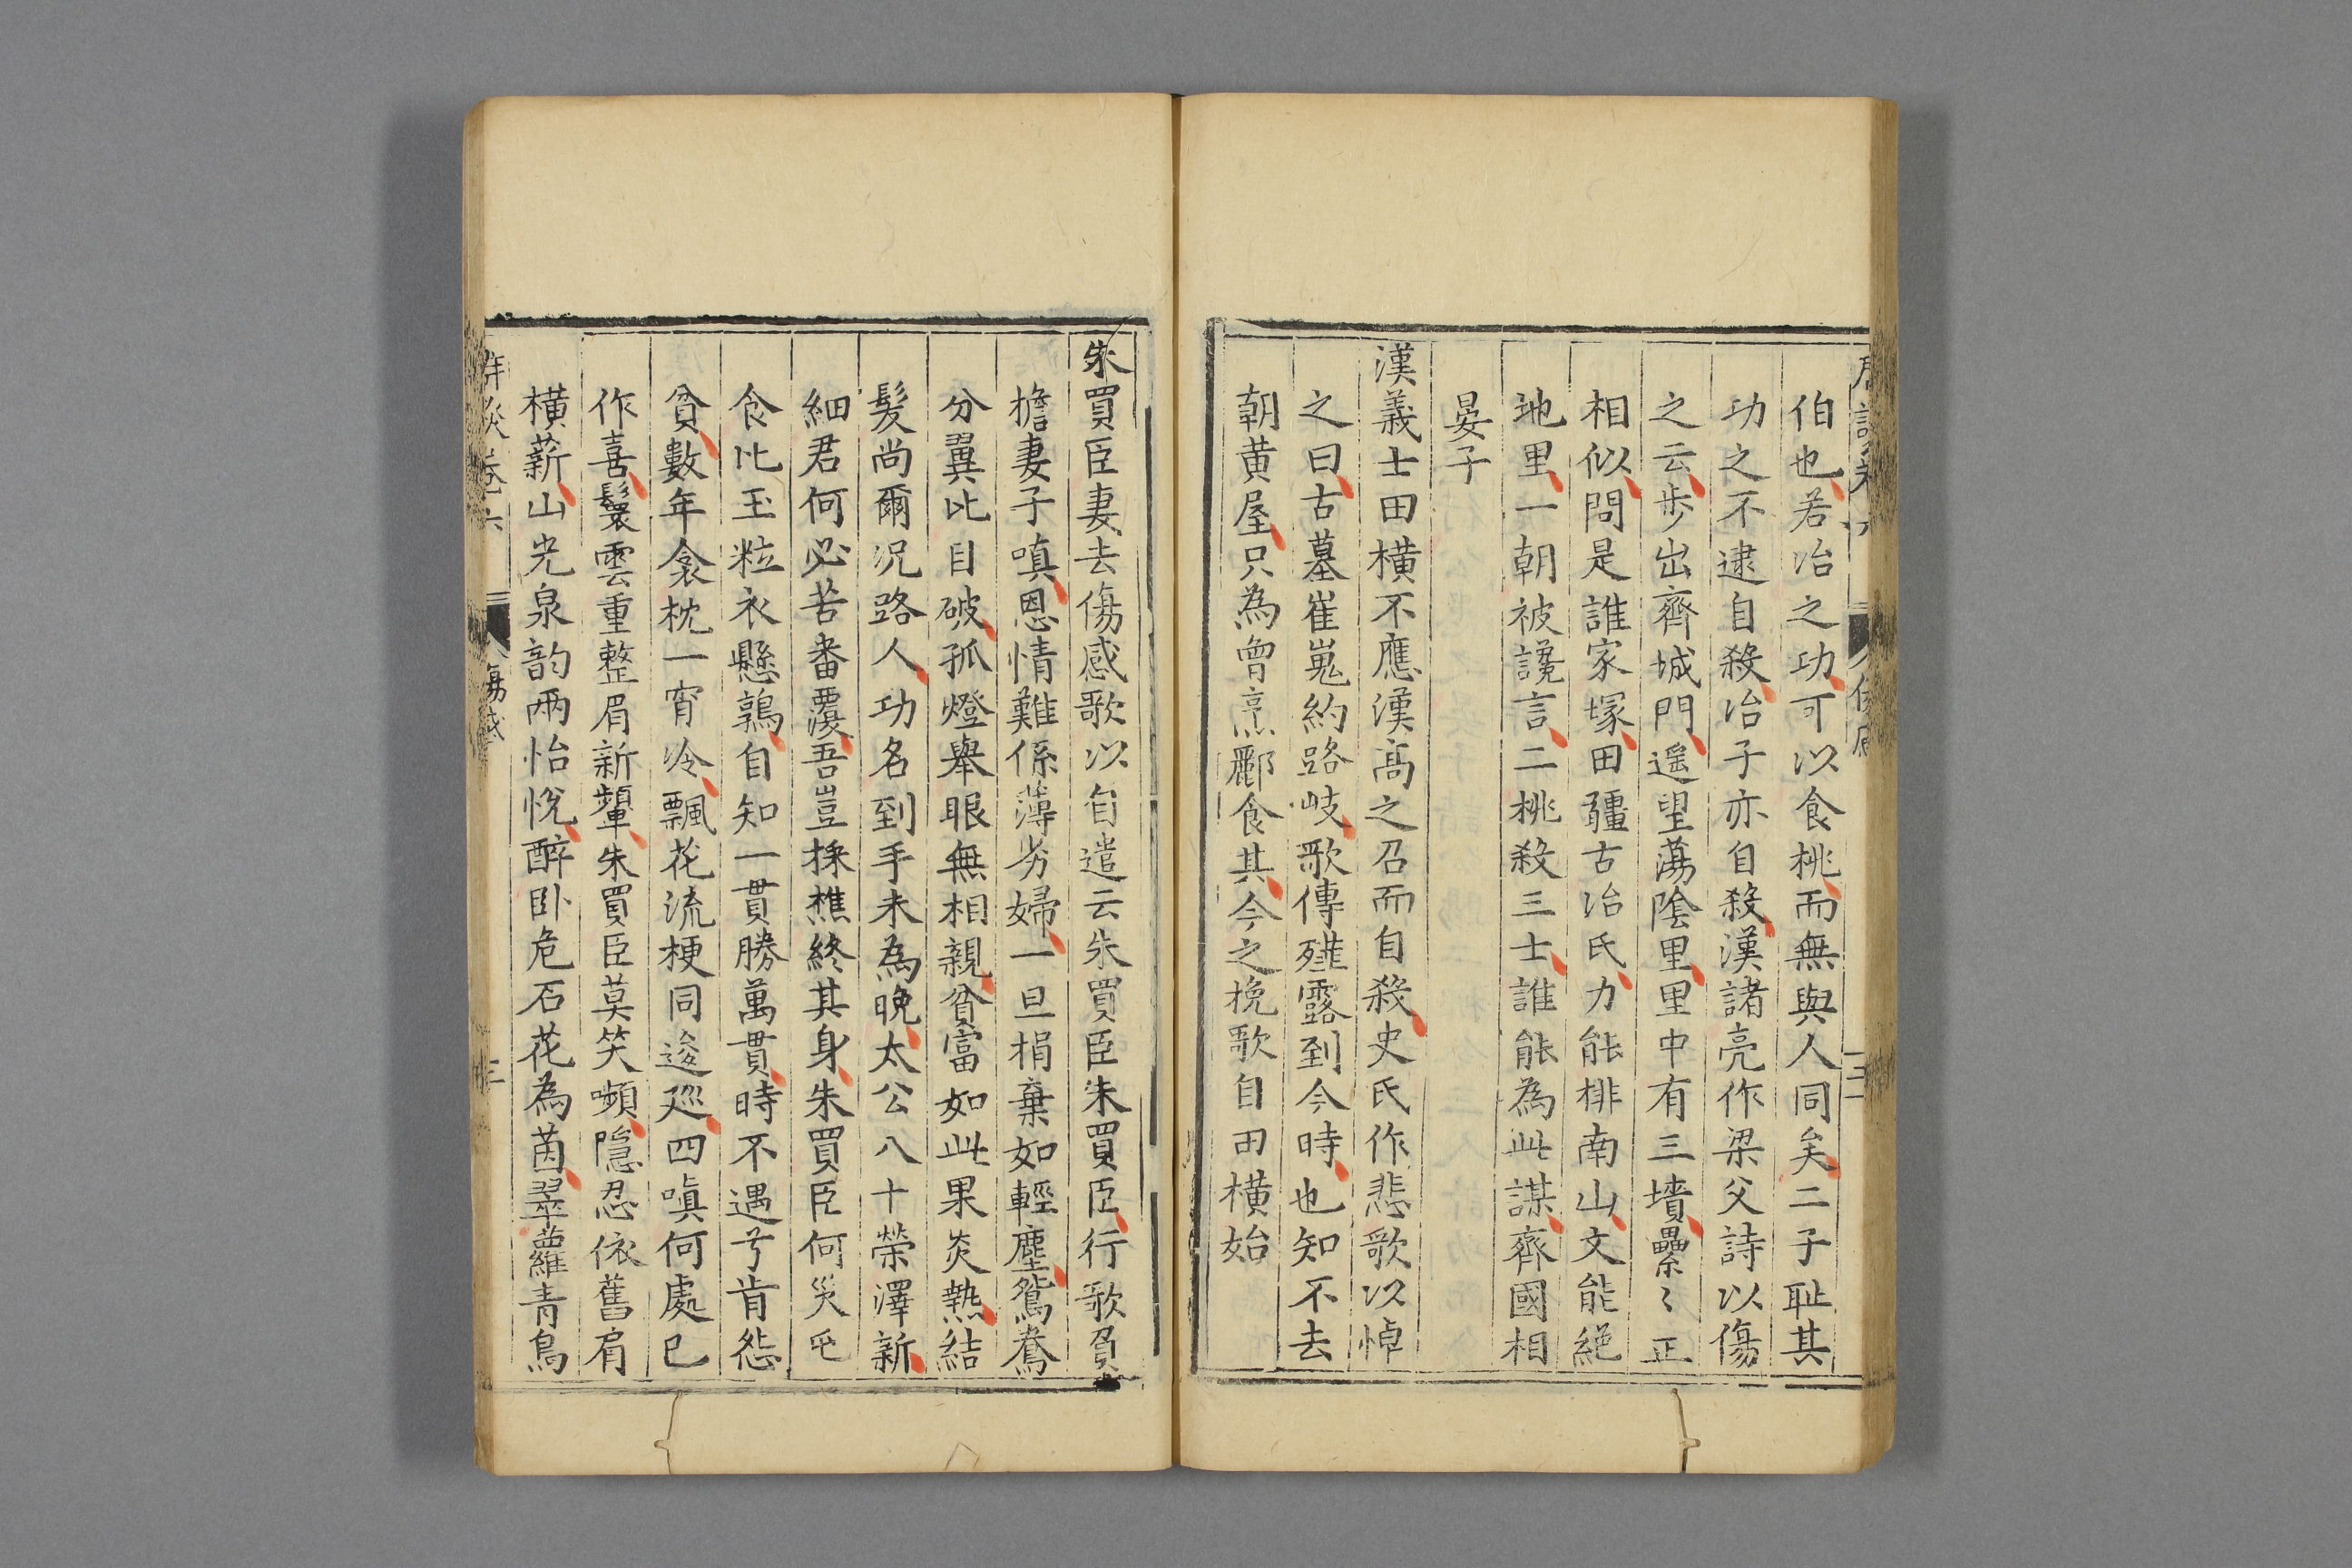 伯也若冶之功可以食桃而無與人同矣二子耻其
功之不逮自殺冶子亦自殺漢諸亮作梁父詩以傷
之云步出齊城門遥望蕩陰里里中有三墳纍〻正
相似問是誰家塚田疆古冶氏力能排南山文能絕
地里一朝被讒言二桃殺三士誰能為此謀齊國相
晏子
漢義士田橫不應漢高之召而自殺史氏作悲歌以悼
之曰古墓崔嵬約路岐歌傳薤露到今時也知不去
朝黄屋只為曾烹酈食其今之挽歌自田横始
朱買臣妻去傷感歌以自遣云朱買臣朱買臣行歌負
擔妻子嗔恩情難係薄劣婦一旦捐棄如輕塵鴛鴦
分翼比目破孤燈舉眼無相親貧富如此果炎熱結
髮尚爾况路人功名到手未為晚太公八十榮澤新
細君何必苦番覆吾豈採樵終其身朱買臣何災屯
食比玉粒衣懸鶉自知一貫勝萬貫時不遇兮肯怨
貧數年衾枕一宵冷飄花流梗同逡廵四嗔何處已
作喜鬟雲重整眉新顰朱買臣莫笑嚬隱忍依舊肩
橫薪山光泉韵兩怡悅醉卧危石花為茵翠蘿青鳥
卷六
傷感
三